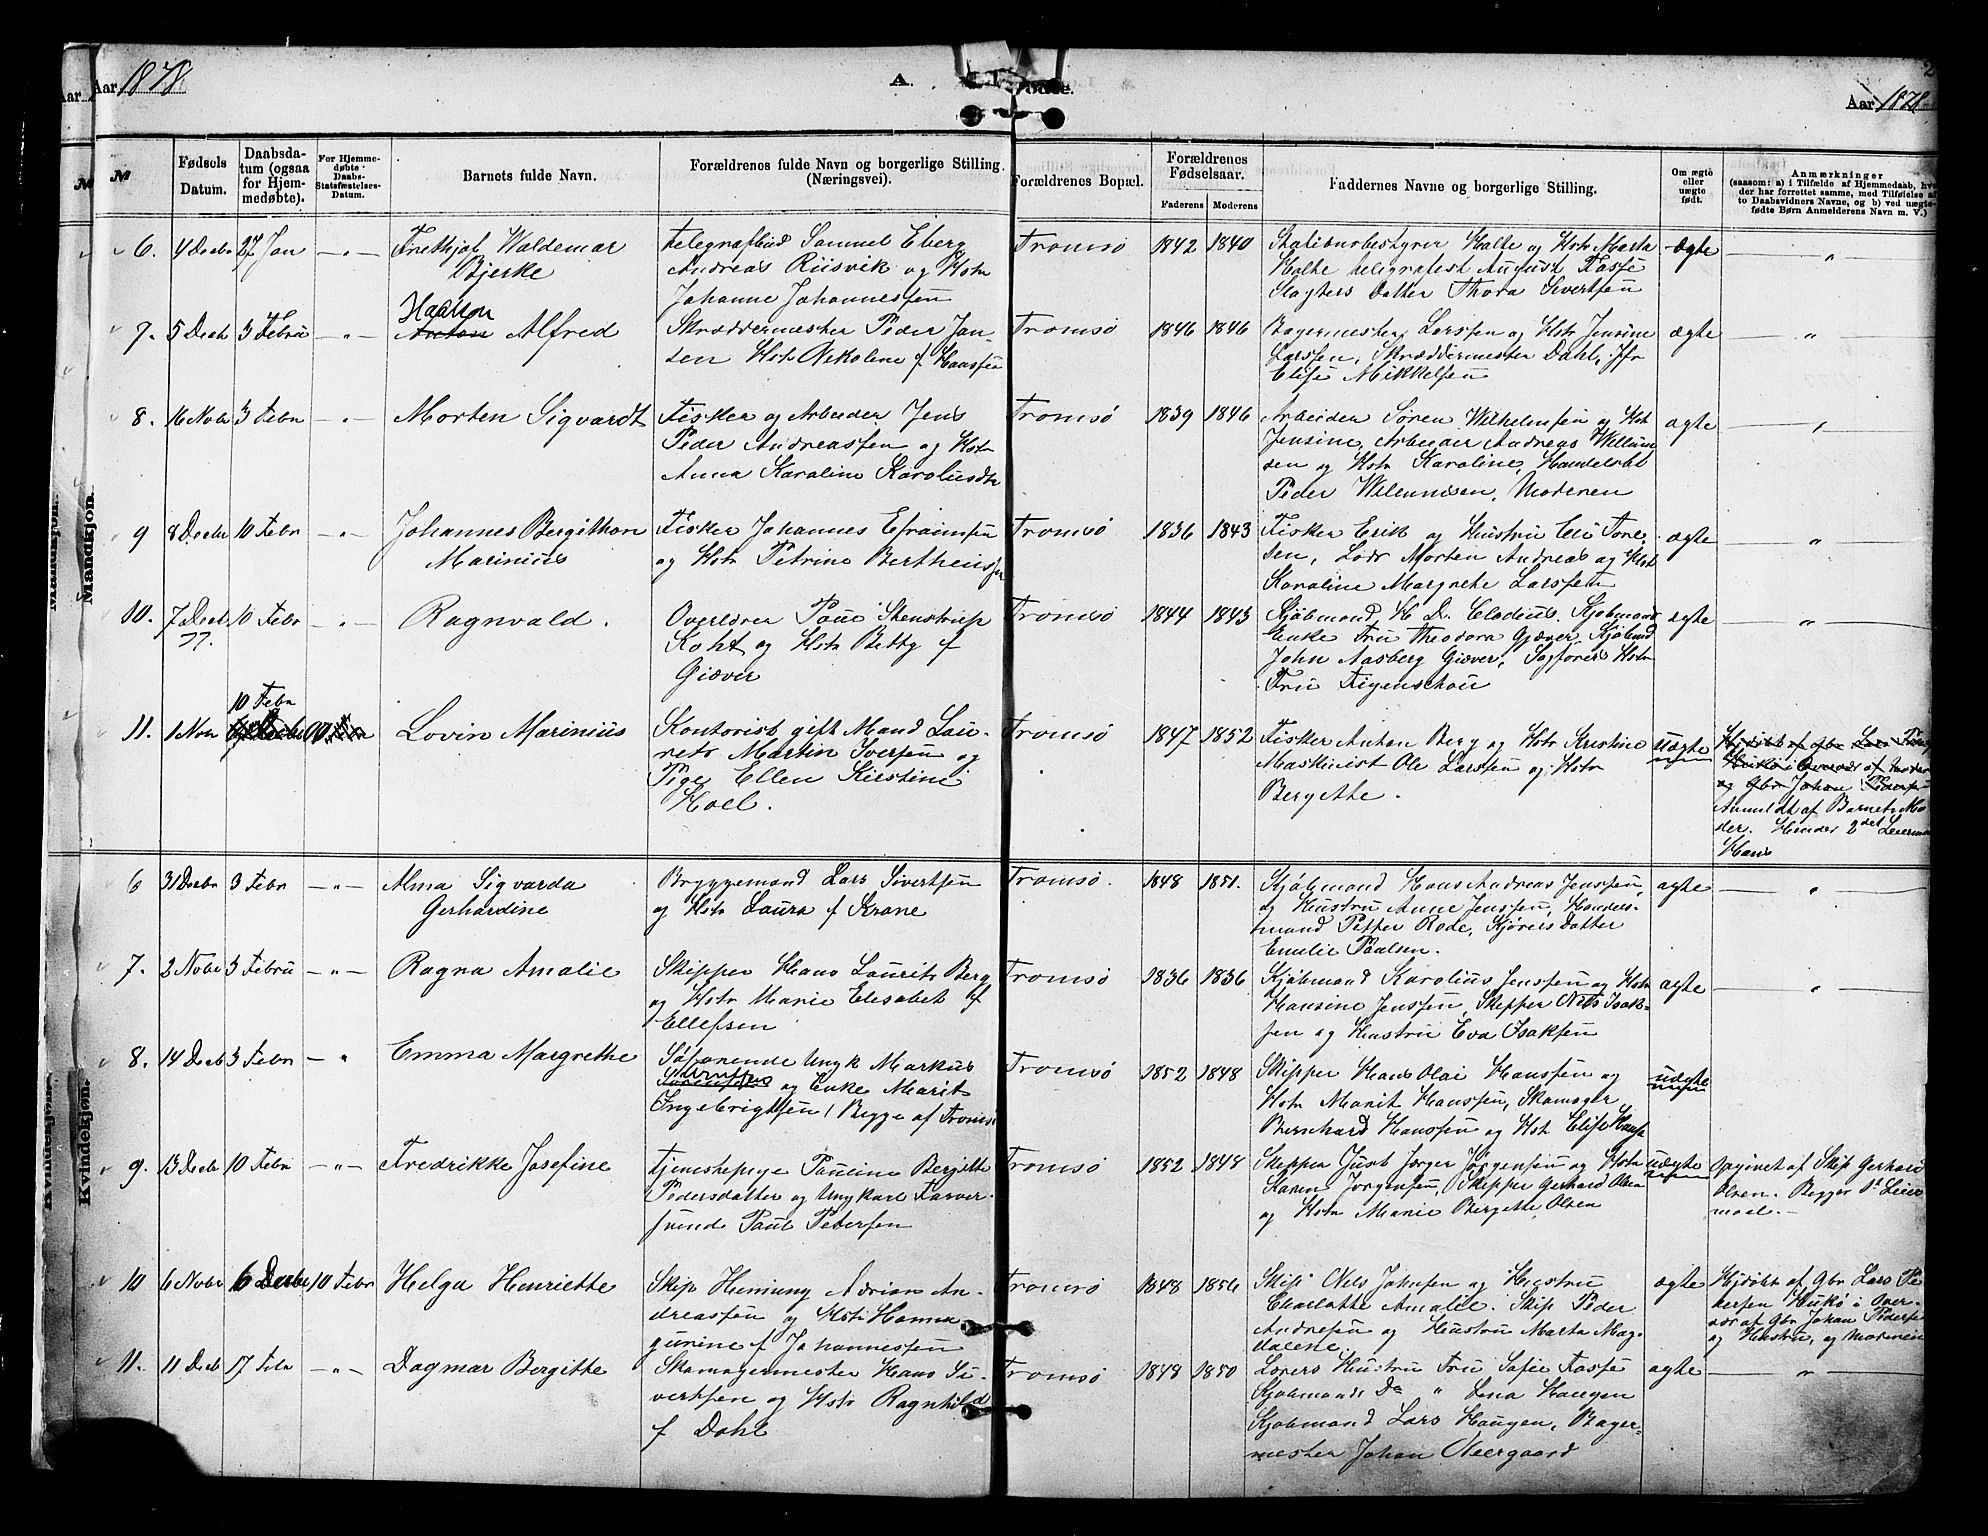 Aar 1878.
A. Fødte.
Aar 1878.
2
№
Fødsels Datum.
Daabsdatum (ogsaa for Hjemmedøbte).
For Hjemmedøbte Daabs-Statsfæstelses-Datum.
Barnets fulde Navn.
Forældrenes fulde Navn og borgerlige Stilling.
(Næringsvei).
Forældrenes Bopæl.
Forældrenes Fødselsaar.
Faderens
Moderens
Faddernes Navne og borgerlige Stilling.
Om ægte eller uægte født.
Anmærkninger
Mandkjøn.
6. 4 Decbr 27 Jan Fridthjof Waldemar Bjerke
Telegrafbud Samuel Eberg
Andreas Riisvik og Hstr
Johanne Johannessen
Tromsø 1842 1840
Stationsbestyrer Holte og Hstr Marta
Holte telegrafist August Fasse
Slagters Datter Thora Sivertsen
ægte
7. 5 Decb 3 Febru Haakon Anton Alfred
Skræddermester Peder Jan-
sen Hstr Nikoline f Hanssen
Tromsø 1846 1846
Bagermester Larssen og Hstr Jensine
Larssen, Skræddermester Dahl, Jfr
Elise Mikkelsen
ægte
8. 16 Nobr 3 Febr Morten Sigvardt
Fisker og Arbeider Jens
Peder Andreassen og Hstr
Anna Karoline Karolusdtr
Tromsø 1839 1846
Arbeider Søren Wilhelmsen og Hst
Jensine, Arbeider Andreas Willum
sen og Hstr Karoline, Handelsbt
Peder Willumsen, Moderen
ægte
9 8 Decbr 10 Febr Johannes Bergithon Marinius
Fisker Johannes Efraimsen
og Hstr Petrine Bertheussen
Tromsø 1836 1843
Fisker Erik og Hustru Eli Tore-
sen, Lods Morten Andreas og Hst
Karoline Margrethe Larssen
ægte
10. 7 Decb 77. 10 Febr Ragnvald.
Overlærer Paul Stenstrup
Koht og Hstr Betty f
Giæver
Tromsø 1844 1843
Kjøbmand H D. Clodius. Kjøbmands
Enke Fru Theodora Giæver, Kjøbmd
John Aasberg Giæver, Sagførers Hstr
Fru Figenschou
ægte
11. 1 Nov 10 Febr Lovin Marinius
Kontorist gift Mand Lau-
rets Martin Iversen og
Pige Ellen Kirstine
Hoel.
Tromsø 1847 1852
Fisker Anton Berg og Hstr Kristine
Maskinist Ole Larssen og Hstr
Bergethe.
uægte
og Gbr Johan Peders
Anmeldt af Barnets Mo
der. Hendes 2det Leierm
Hans
Kvindekjøn.
6 31 Decbr 3 Febr Alma Sigvarda Gerhardine
Bryggemand Lars Sivertsen
og Hstr Laura f Krane
Tromsø. 1848 1851.
Kjøbmand Hans Andreas Jenssen,
og Hustru Anne Jenssen, Handels-
mand Petter Rode, Kjørers Datter
Emilie Paulsen.
ægte
7. 2 Nobr 3 Febru Ragna Amalie
Skipper Hans Laurits Berg
og Hstr Marie Elisabet f
Ellefsen
Tromsø 1836 1836
Kjøbmand Karolius Jenssen og Hstr
Hansine Jenssen, Skipper Nils Isak-
sen og Hustru Eva Isaksen
ægte
8. 14 Decb 3 Febr Emma Margrethe
Søfarende Ungk Markus
og Enke Marit
Ingebrigtsen / Begge af Tromsø
Tromsø 1852 1848
Skipper Hans Olai Hanssen og
Hstr Marit Hanssen, Skomager
Bernhard Hanssen og Hst Elise Hanss
uægte
9. 13 Decbr 10 Febr Fredrikke Josefine
Tjenestepige Pauline Bergitte
Pedersdatter og Ungkarl Farver-
svend Paul Petersen
Tromsø 1852 1848
Skipper Just Jørger Jørgensen og Hstr
Karen Jørgensen, Skipper Gerhard Olsen
og Hstr Marie Bergette Olsen
uægte
Opgivet af Skip Gerhard
Olsen. Begges 1st Leier
maal.
10 6 Nobr 6 Decbr 10 Febr Helga Henriette
Skip Heming Adrian An-
dreassen og Hstr Hanna
gurine f Johannessen
Tromsø 1848 1856
Skip Nils Johnsen og Hustru
Charlotte Amalie. Skip Peder
Andresen og Hustru Marta Mag-
dalene
ægte
Hjdøbt af Gbr Lars Pe
dersen Hukø i Over-
vær af Gbr Johan Peders
og Hustru, og Moderen
11. 11 Decb 17 Febr Dagmar Bergitte
Skomagermester Hans Si-
vertsen og Hstr Ragnhild
f Dahl
Tromsø 1848 1850
Losers Hustru Fru Sofie Fasse
Kjøbmands Do " Lena Haugen
Kjøbmand Lars Haugen, Bager-
mester Johan Neergaard
ægte